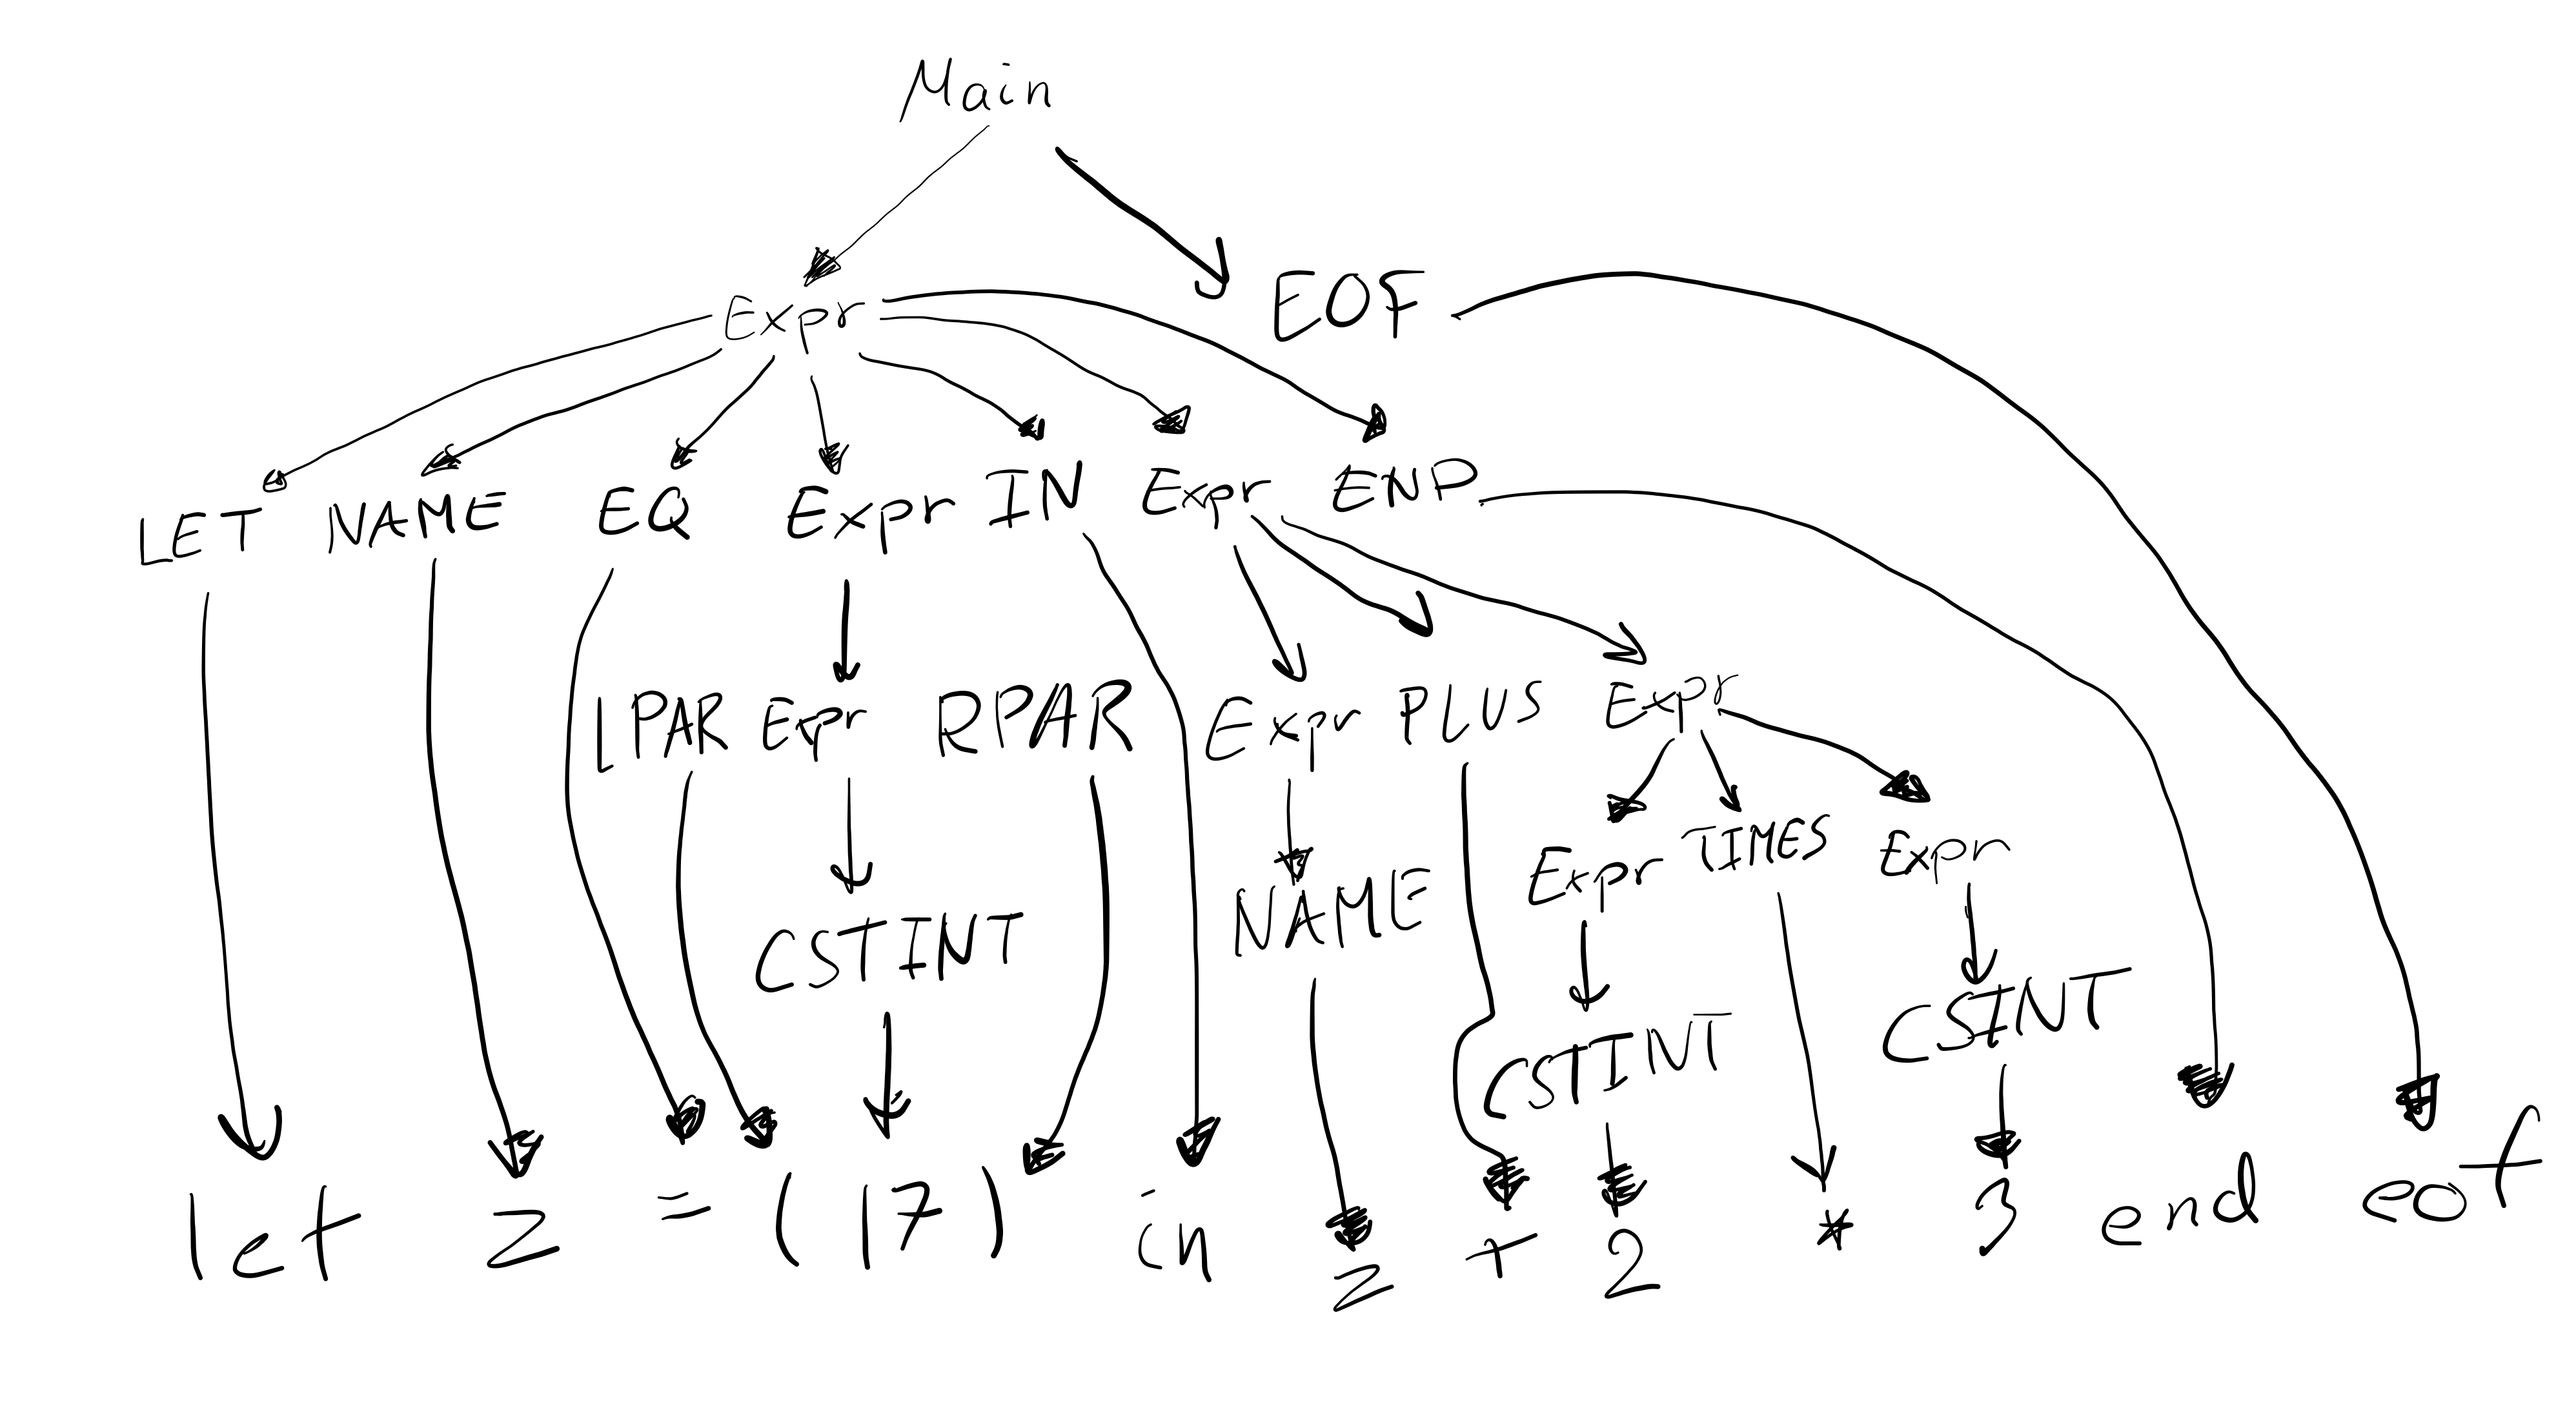 Main
Expr EOF
LET NAME EQ Expr IN Expr END
LPAR Expr RPAR Expr PLUS Expr
Expr TIMES Expr
CSTINT NAME CSTINT CSINT
let z = ( 17 ) in z + 2 * 3 end eof